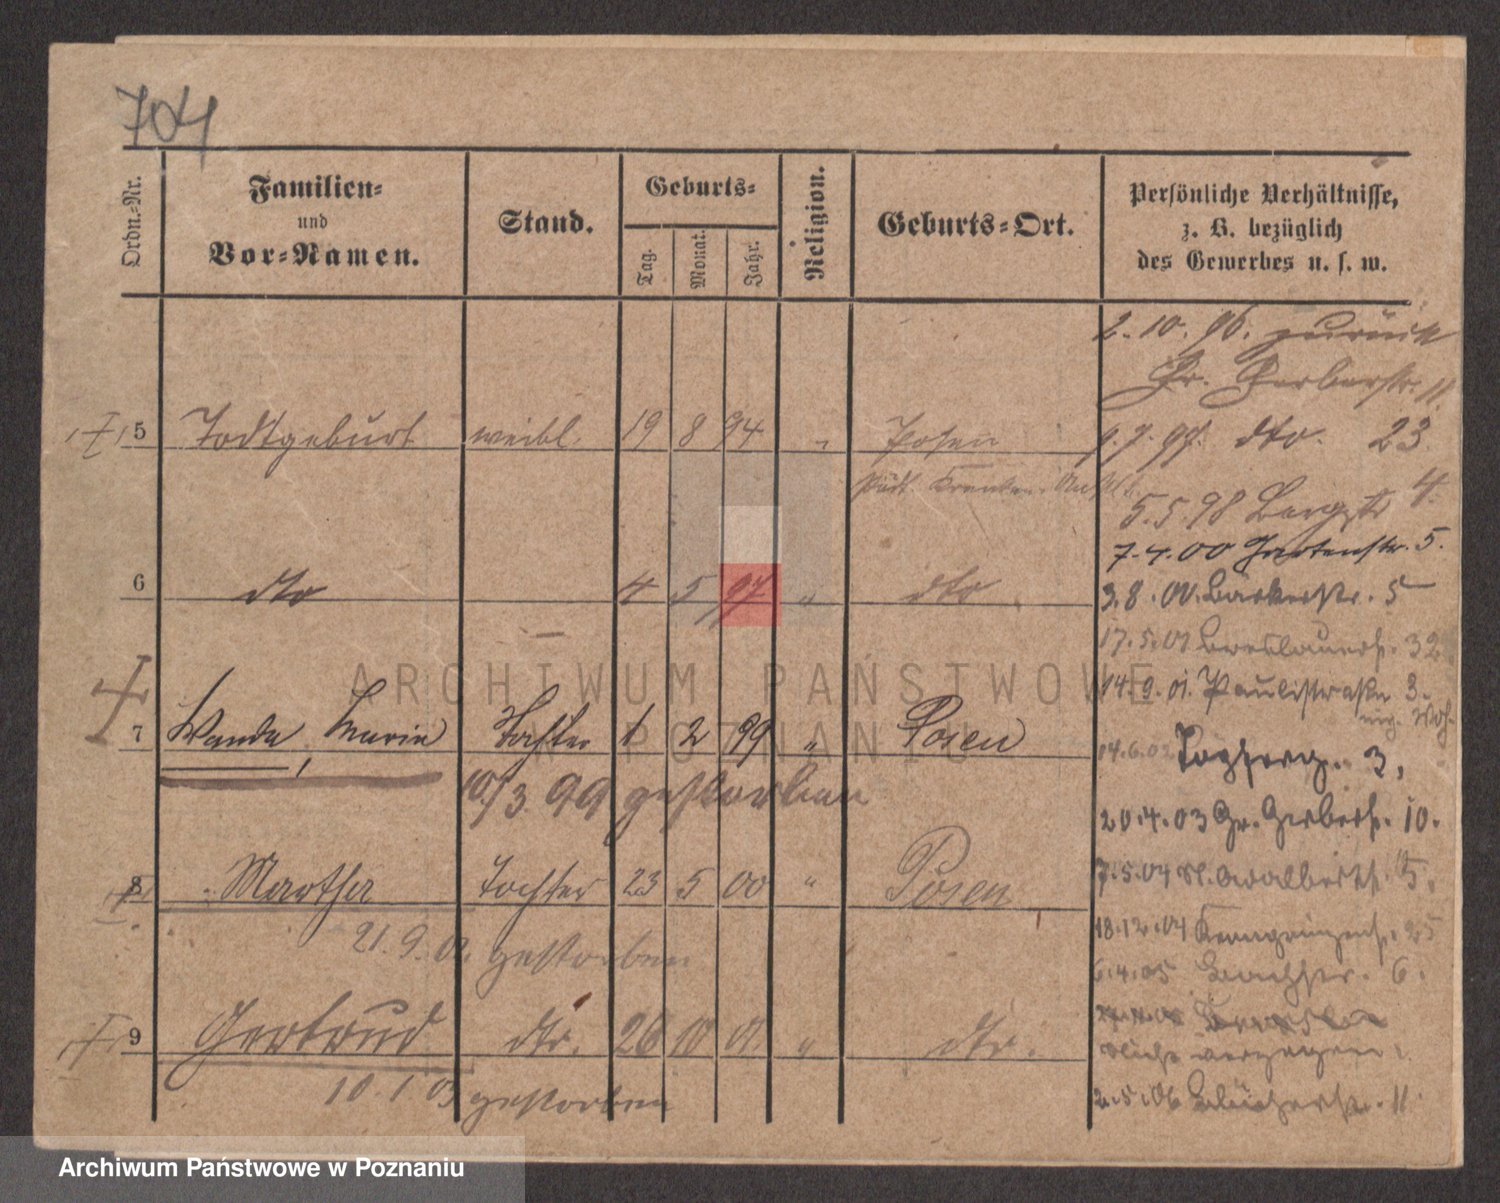 704
Ordn.=Nr.
Familien=
und
Vor=Namen.
Stand.
Geburts=
Tag.
Monat.
Jahr.
Religion.
Geburts=Ort.
Persönliche Verhältnisse,
z. B. bezüglich
des Gewerbes u. s. w.
2. 10. 96. zurück
Gr. Gerberstr. 11.
5 Todtgeburt weibl. 19 8 94 " Posen
9. 7. 97. dto. 23.
städt. Kranken-Anst.
5. 5. 98 Bergstr 4.
7. 4. 00 Gartenstr. 5.
6 dto 4 5 97 " dto.
3. 8. 00. Bäckerstr. 5
17. 5. 01 Breslauerstr. 32.
14. 9. 01. Paulistrasse 3.
7 Wanda, Maria Tochter 1 2 99 " Posen
14. 6. 02 3.
10/3. 99 gestorben
20. 4. 03 Gr. Gerberstr. 10.
8 Martha Tochter 23 5 00 " Posen
7. 5. 04 St. Adalbertstr. 15.
21. 9. 01. gestorben
18. 12. 04 25
6. 4. 05 Bachstr. 6.
9 Gertrud dto. 26 10 01. " dto.
verzogen.
10. 1. 03 gestorben
2. 5. 06 Blücherstr. 11.
ARCHIWUM PAŃSTWOWE
W POZNANIU
Archiwum Państwowe w Poznaniu